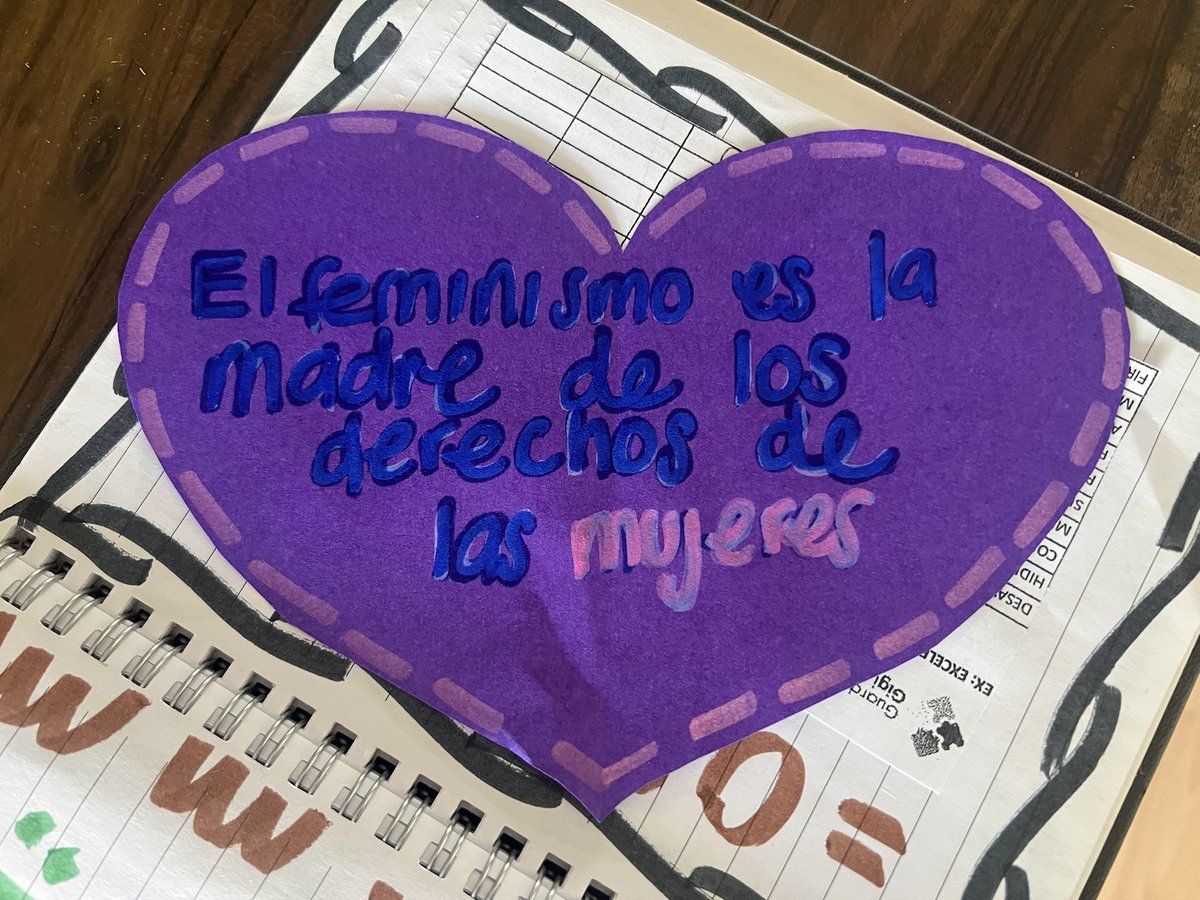 El feminismo es la
madre de los
derechos de
las mujeres
FIR
HIDI
DESA
EX: EXCELE
Guard
Gigi